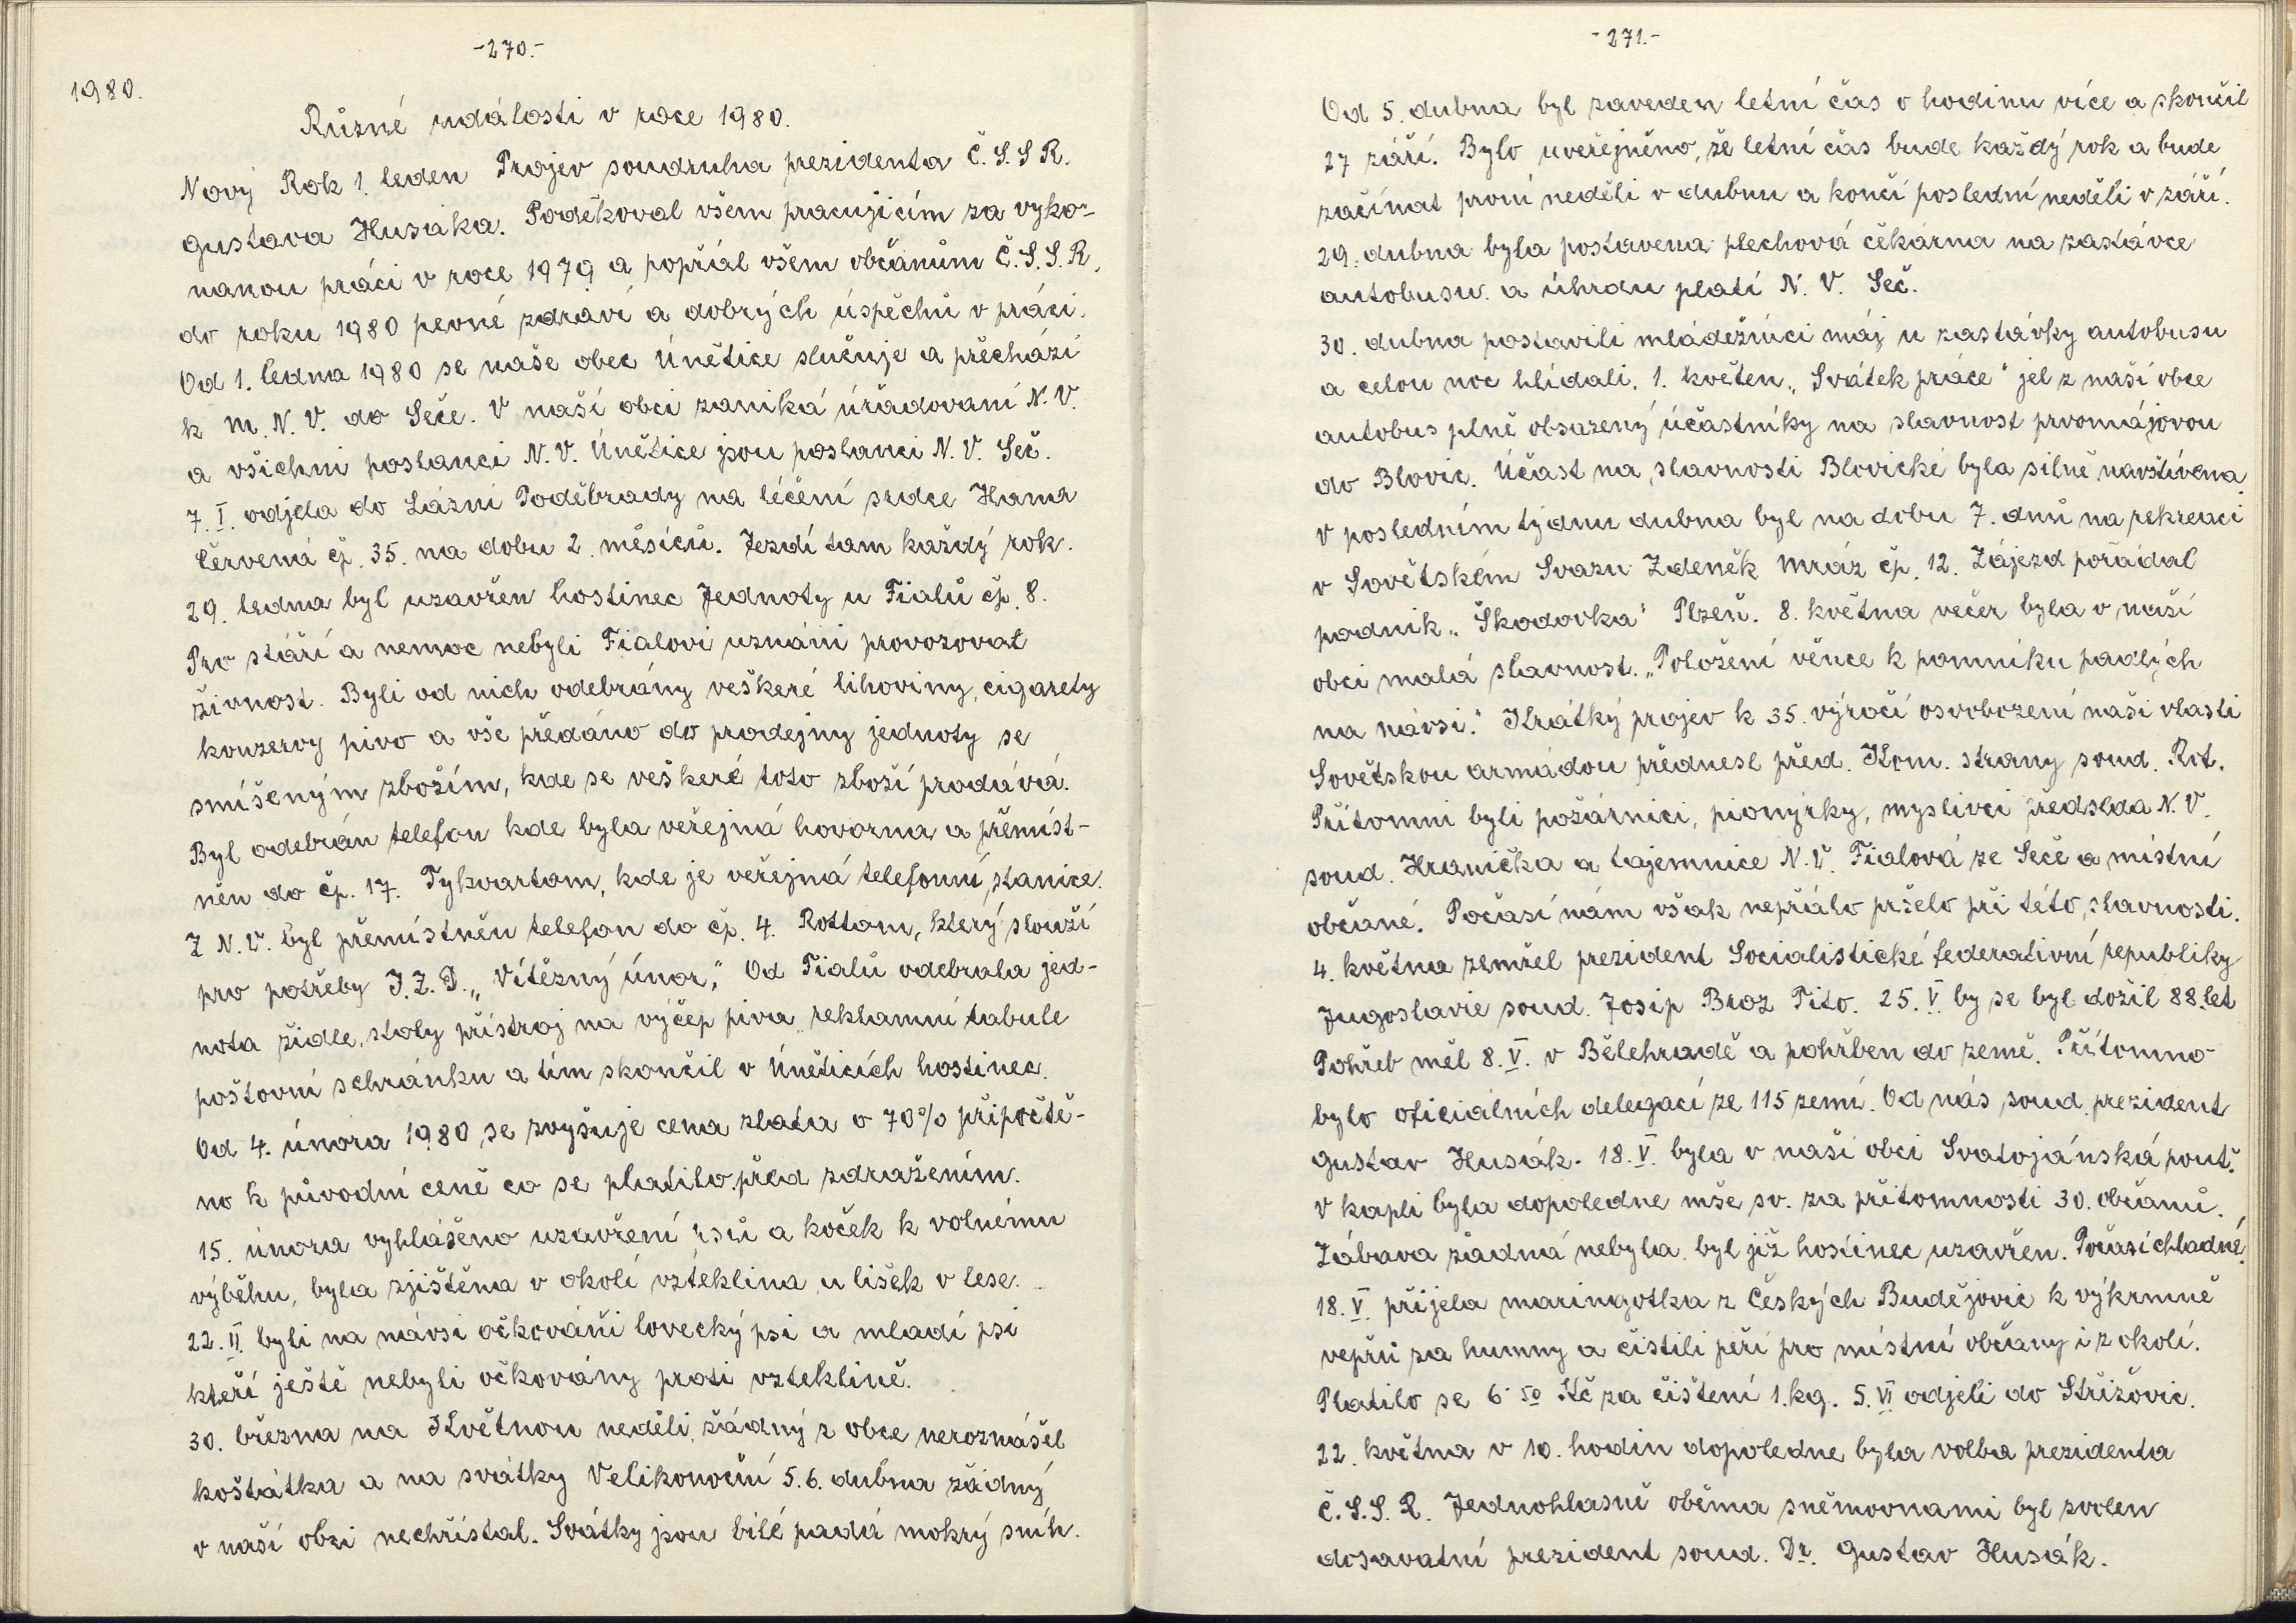 -270.-
1980.
Různé události v roce 1980.
Nový Rok 1. leden Projev soudruha prezidenta Č.S.S R.
Gustava Husáka. Poděkoval všem pracujícím za vyko-
nanou práci v roce 1979 a popřál všem občanům Č.S.S.R.
do roku 1980 pevné zdraví a dobrých úspěchů v práci.
Od 1. ledna 1980 se naše obec Únětice slučuje a přechází
k M.N.V. do Seče. V naší obci zaniká úřadovaní N.V.
a všichni poslanci N.V. Únětice jsou poslanci N.V. Seč.
7. I. odjela do Lázní Poděbrady na léčení srdce Hana
Červená čp. 35. na dobu 2. měsíců. Jezdí tam každý rok.
29. ledna byl uzavřen hostinec Jednoty u Fialů čp. 8.
Pro stáří a nemoc nebyli Fialovi uznáni provozovat
živnost. Byli od nich odebrány veškeré lihoviny, cigarety
konzervy pivo a vše předáno do prodejny jednoty se
smíšeným zbožím, kde se veškeré toto zboží prodává.
Byl odebrán telefon kde byla veřejná hovorna a přemíst-
něn do čp. 17. Tykvartom, kde je veřejná telefonní stanice.
Z N.V. byl přemístněn telefon do čp. 4. Rottom, který slouží
pro potřeby J.Z.D. „Vítězný únor," Od Fialů odebrala jed-
nota židle, stoly přístroj na výčep piva reklamní tabule
poštovní schránku a tím skončil v Úněticích hostinec.
Od 4. února 1980 se zvyšuje cena zlata o 70% připočte-
no k původní ceně co se platilo před zdražením.
15. února vyhlášeno uzavření psů a koček k volnému
výběhu, byla zjištěna v okolí vzteklina u lišek v lese.
22. II. byli na návsi očkováni lovecký psi a mladí psi
kteří ještě nebyli očkovány proti vzteklině.
30. března na Květnou neděli žádný z obce neroznášel
košťátka a na svátky Velikonoční 5. 6. dubna žádný
v naší obci nechřístal. Svátky jsou bílé padá mokrý sníh.
-271.-
Od 5. dubna byl zaveden letní čas o hodinu více a skončil
27 září. Bylo uveřejněno, že letní čas bude každý rok a bude
začínat první neděli v dubnu a končí poslední neděli v září.
29. dubna byla postavena plechová čekárna na zastávce
autobusu a úhradu platí N. V. Seč.
30. dubna postavili mládežníci máj u zastávky autobusu
a celou noc hlídali. 1. květen „Svátek práce" jel z naší obce
autobus plně obsazený účastníky na slavnost prvomájovou
do Blovic. Účast na slavnosti Blovické byla silně navštívena.
V posledním týdnu dubna byl na dobu 7. dnů na rekreaci
v Sovětském Svazu Zdeněk Mráz čp. 12. Zájezd pořádal
podnik „Škodovka" Plzeň. 8. května večer byla v naší
obci malá slavnost. „Položení věnce k pomníku padlých
na návsi." Krátký projev k 35. výročí osvobození naši vlasti
Sovětskou armádou přednesl před. Kom. strany soud. Rot.
Přítomni byli požárnici, pionýrky, myslivci předseda N.V.
soud. Hranička a tajemnice N.V. Fialová ze Seče a místní
občané. Počasí nám však nepřálo pršelo při této slavnosti.
4. května zemřel prezident Socialistické federativní republiky
Jugoslavie soud. Josip Broz Tito. 25. V. by se byl dožil 88. let
Pohřeb měl 8. V. v Bělehradě a pohřben do země. Přítomno
bylo oficialních delegací ze 115 zemí. Od nás soud. prezident
Gustav Husák. 18. V. byla v naši obci Svatojánská pouť.
V kapli byla dopoledne mše sv. za přítomnosti 30. občanů.
Zábava žádná nebyla byl již hostinec uzavřen. Počasí chladné.
18. V. přijela maringotka z Českých Budějovic k výkrmně
vepřů za humny a čistili peří pro místní občany i z okolí.
Platilo se 6.50 Kč za čištění 1. kg. 5. VI odjeli do Střížovic.
22. května v 10. hodin dopoledne byla volba prezidenta
Č. S. S. R. Jednohlasně oběma sněmovnami byl zvolen
dosavatní prezident soud. Dr. Gustav Husák.